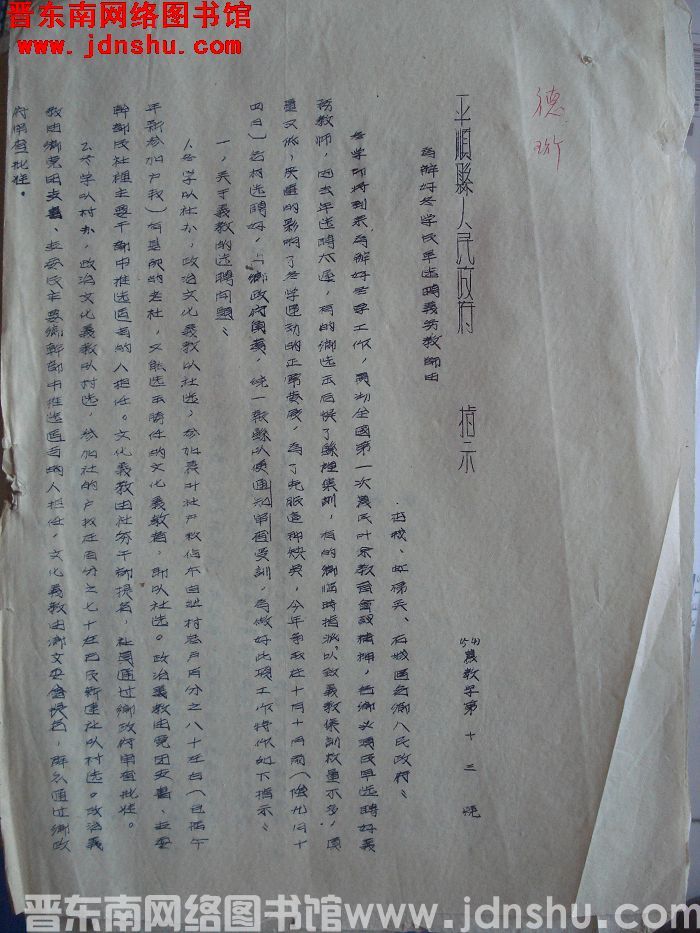 晋东南网络图书馆
www.jdnshu.com
德
平順縣人民政府 指示
(54)農教字第十三號
為辦好冬学民早选聘義务教師由
各鄉人民政府:
冬学即將到来為辦好冬学工作,全國第一次農民业余教育會議精神,各鄉必須民早选聘好義
務教师,因去年选聘太遲,有的鄉选出后误了縣裡集訓,有的鄉臨時指派。以致義教集訓数量不多,質
量又低,嚴重的影响了冬学運动的正常發展,為了克服這种缺点,今年争取在十月十日前(陰九月十
四日)各村选聘好,鄉政府彙表,統一報縣以便通知審查受訓,為做好此項工作特作如下指示:
一,关于義教的选聘问題:
1.冬学以社办,政治文化義教以社选,参加農业社户数佔本自然村总户百分之八十左右(包括今
年新参加户数)有基础的老社,又能选出勝任的文化義教者,即以社选。政治義教由党团支書、
幹部民社裡主要干部中推选適当的人担任。文化義教由社务干部提名,社員通过鄉政府審查批准。
2.冬学以村办,政治文化義教以村选,参加社的户数在百分之七十左右及新建社以村选。政治義
教由鄉党团支書、主要民主鄉幹部中推选適当的人担任,文化義教由鄉文委會提名,群众通过鄉政
府審查批准。
晋东南网络图书馆www.jdnshu.com